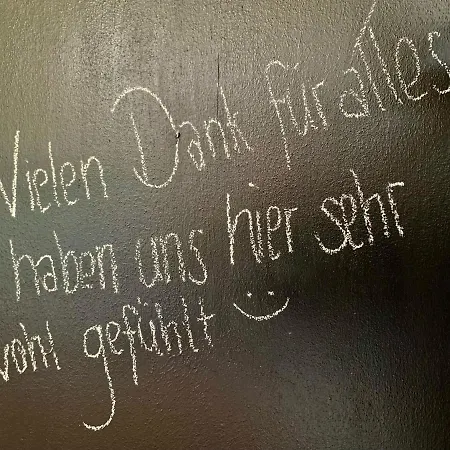 Vielen Dank für alles
haben uns hier sehr
wohl gefühlt